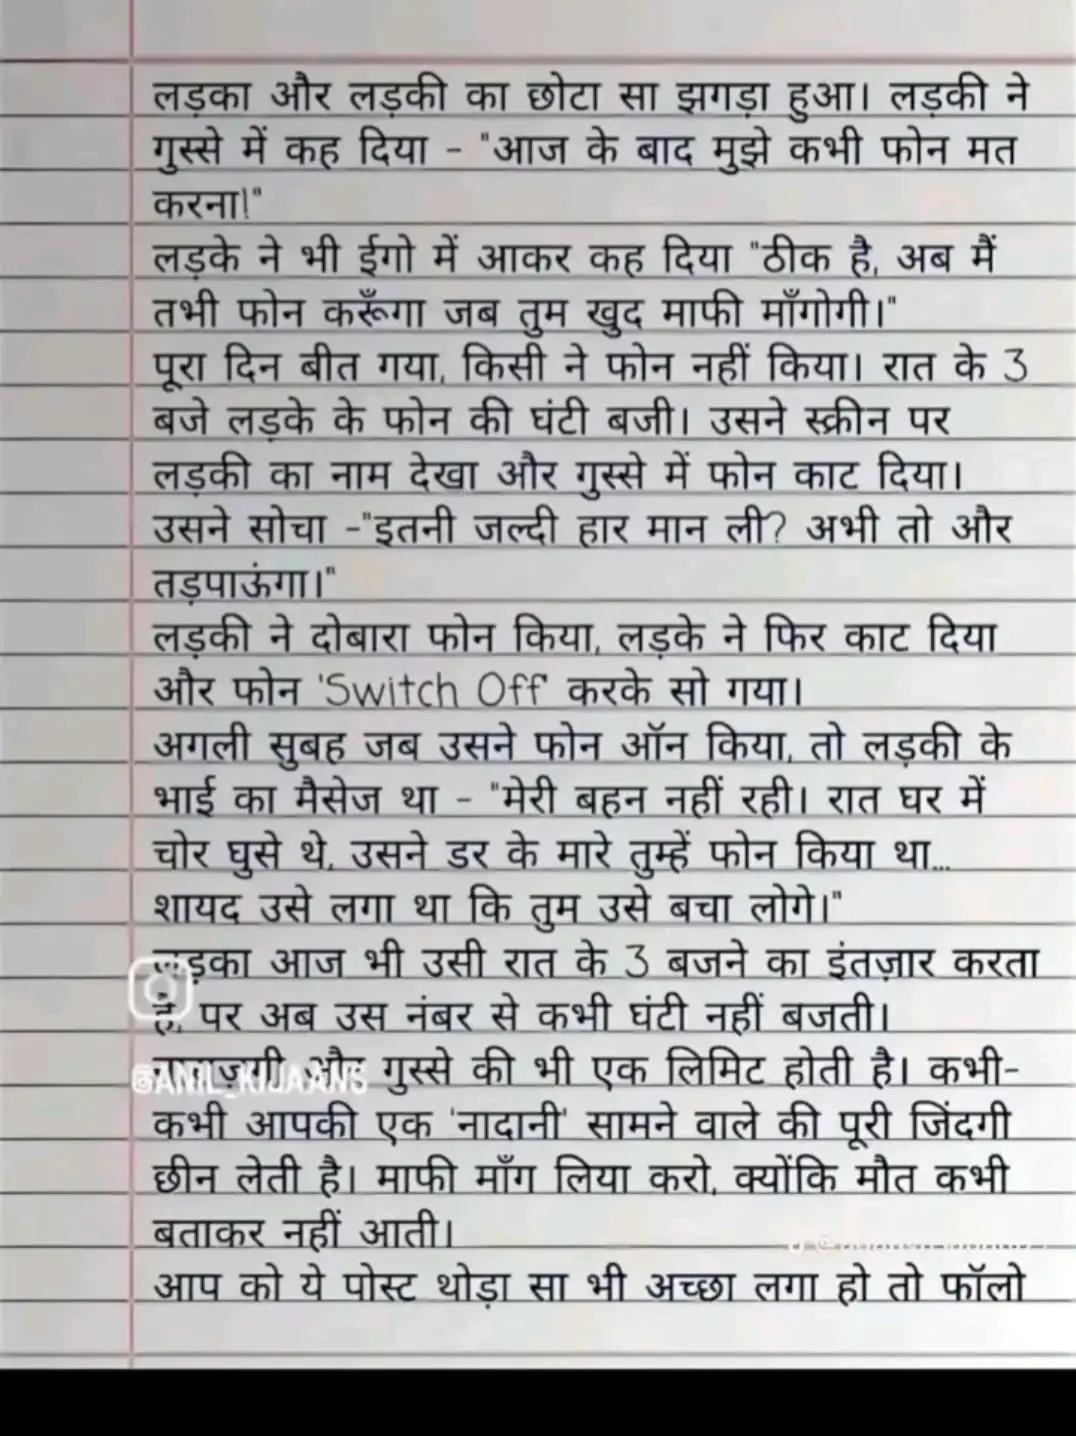 लड़का और लड़की का छोटा सा झगड़ा हुआ। लड़की ने
गुस्से में कह दिया - "आज के बाद मुझे कभी फोन मत
करना!"
लड़के ने भी ईगो में आकर कह दिया "ठीक है, अब मैं
तभी फोन करूँगा जब तुम खुद माफी माँगोगी।"
पूरा दिन बीत गया, किसी ने फोन नहीं किया। रात के 3
बजे लड़के के फोन की घंटी बजी। उसने स्क्रीन पर
लड़की का नाम देखा और गुस्से में फोन काट दिया।
उसने सोचा -"इतनी जल्दी हार मान ली? अभी तो और
तड़पाऊंगा।"
लड़की ने दोबारा फोन किया, लड़के ने फिर काट दिया
और फोन 'Switch Off' करके सो गया।
अगली सुबह जब उसने फोन ऑन किया, तो लड़की के
भाई का मैसेज था - "मेरी बहन नहीं रही। रात घर में
चोर घुसे थे, उसने डर के मारे तुम्हें फोन किया था...
शायद उसे लगा था कि तुम उसे बचा लोगे।"
लड़का आज भी उसी रात के 3 बजने का इंतज़ार करता
है, पर अब उस नंबर से कभी घंटी नहीं बजती।
और गुस्से की भी एक लिमिट होती है। कभी-
@ANIL_KIJAANS
कभी आपकी एक 'नादानी' सामने वाले की पूरी जिंदगी
छीन लेती है। माफी माँग लिया करो, क्योंकि मौत कभी
बताकर नहीं आती।
आप को ये पोस्ट थोड़ा सा भी अच्छा लगा हो तो फॉलो